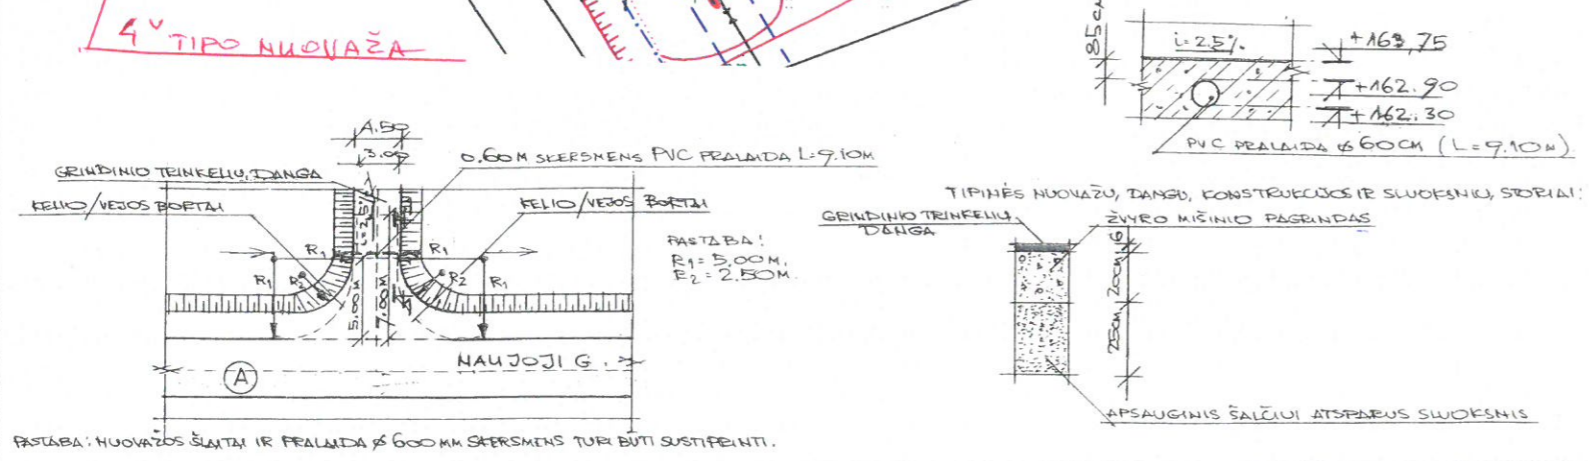 4" TIPO NUOVAŽA
85cm
i=2.5%
+163,75
+162.90
+162.30
PVC PRALAIDA ⌀ 60CM (L=9.10M)
4.50
3.00
0.60M SKERSMENS PVC PRALAIDA L=9.10M
GRINDINIO TRINKELIŲ DANGA
KELIO/VEJOS BORTAI
KELIO/VEJOS BORTAI
i=2,5%
R1
R1
R1
R2
R2
R1
5.00M
7.00M
PASTABA!
R1= 5,00M.
R2= 2.50M.
NAUJOJI G.
A
PASTABA: NUOVAŽOS ŠLAITAI IR PRALAIDA ⌀ 600MM SKERSMENS TURI BŪTI SUSTIPRINTI.
TIPINĖS NUOVAŽŲ, DANGŲ, KONSTRUKCIJOS IR SLUOKSNIŲ, STORIAI:
GRINDINIO TRINKELIŲ
DANGA
ŽVYRO MIŠINIO PAGRINDAS
6
20cm
25cm
APSAUGINIS ŠALČIUI ATSPARUS SLUOKSNIS